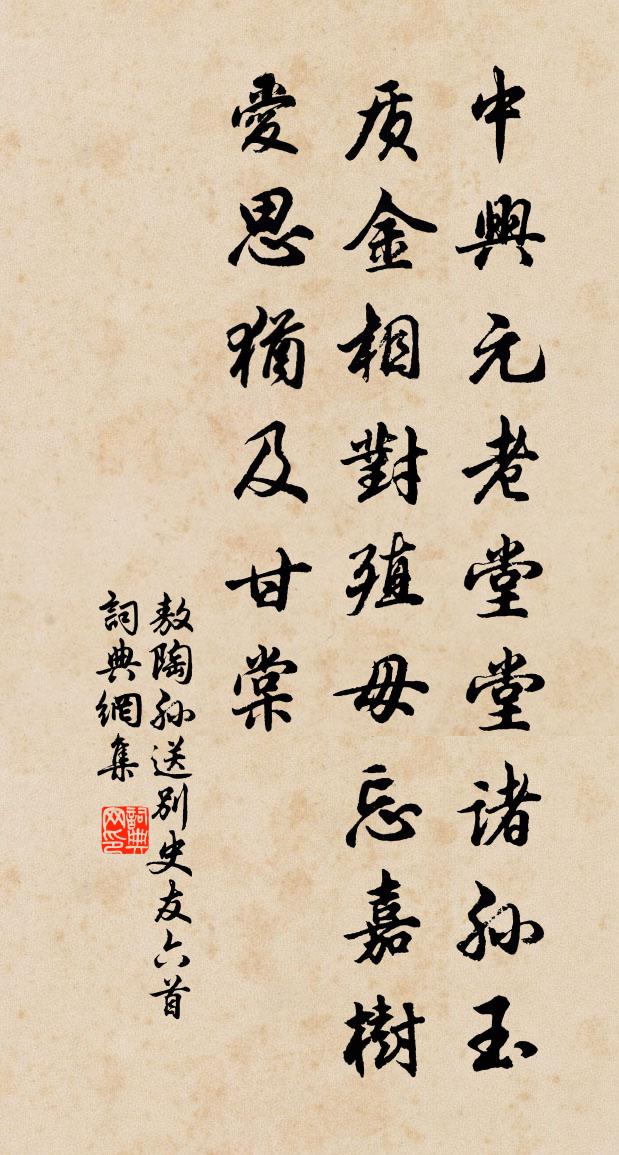 中興元老堂堂諸孙玉
质金相對殖毋忘嘉樹
愛思猶及甘棠
敖陶孙送别史友六首
詞典網集
詞典网印